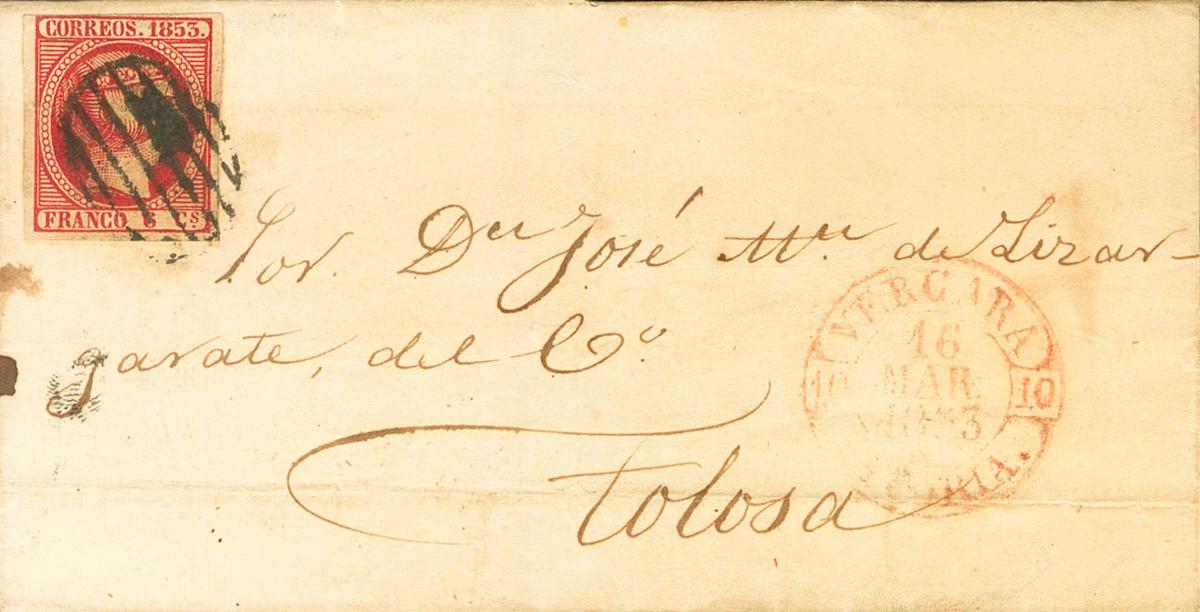 CORREOS. 1853.
FRANCO 6 Cs
Por. Dn José Ma. de Lizar-
garate, del Co.
Tolosa
VERGARA
16
MAR
1853
10 10